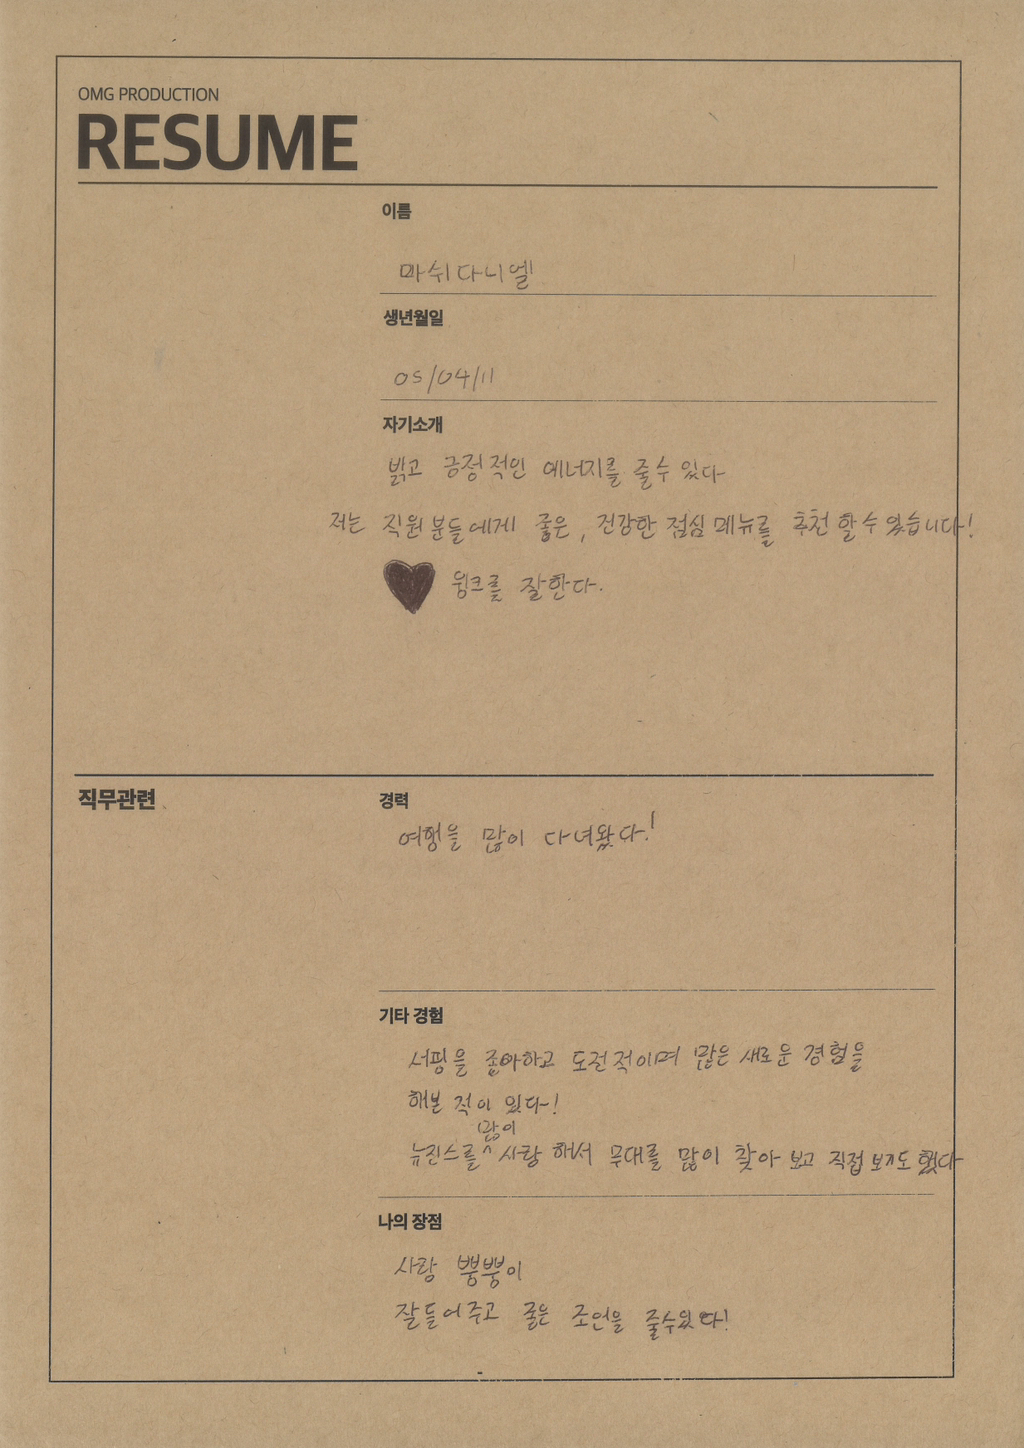 OMG PRODUCTION
RESUME
이름
마쉬다니엘
생년월일
05/04/11
자기소개
밝고 긍정적인 에너지를 줄수 있다
저는 직원분들에게 좋은, 건강한 점심메뉴를 추천 할 수 있습니다!
윙크를 잘한다.
직무관련
경력
여행을 많이 다녀왔다!
기타 경험
서핑을 좋아하고 도전적이며 많은 새로운 경험을
해본 적이 있다~!
뉴진스를 많이 사랑해서 무대를 많이 찾아 보고 직접 보기도 했다
나의 장점
사랑 뿜뿜이
잘들어주고 좋은 조언을 줄수있다!